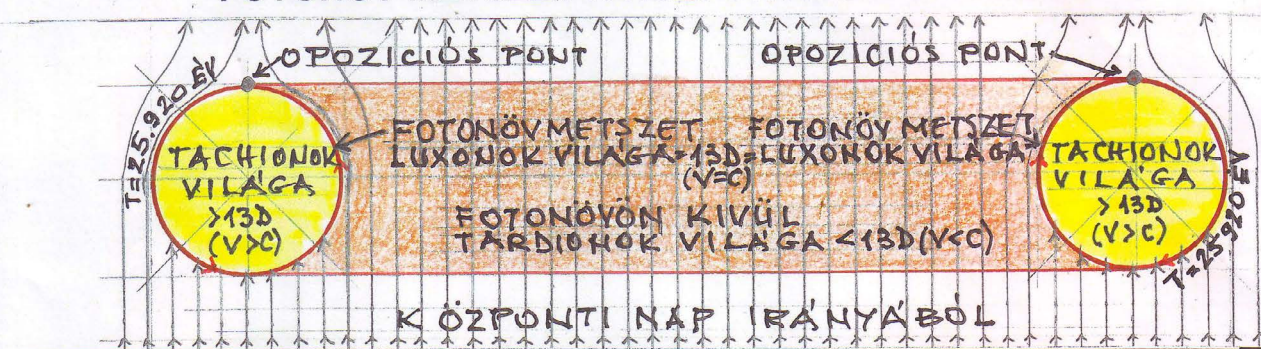 OPOZICIÓS PONT OPOZICIÓS PONT
T=25.920 ÉV
FOTONÖVMETSZET FOTONÖV METSZET
LUXONOK VILÁGA=13D=LUXONOK VILÁGA
(V=C)
TACHIONOK
VILÁGA
>13D
(V>C)
FOTONÖVÖN KIVÜL
TARDIONOK VILÁGA <13D(V<C)
TACHIONOK
VILÁGA
>13D
(V>C)
T=25.920 ÉV
KÖZPONTI NAP IRÁNYÁBÓL